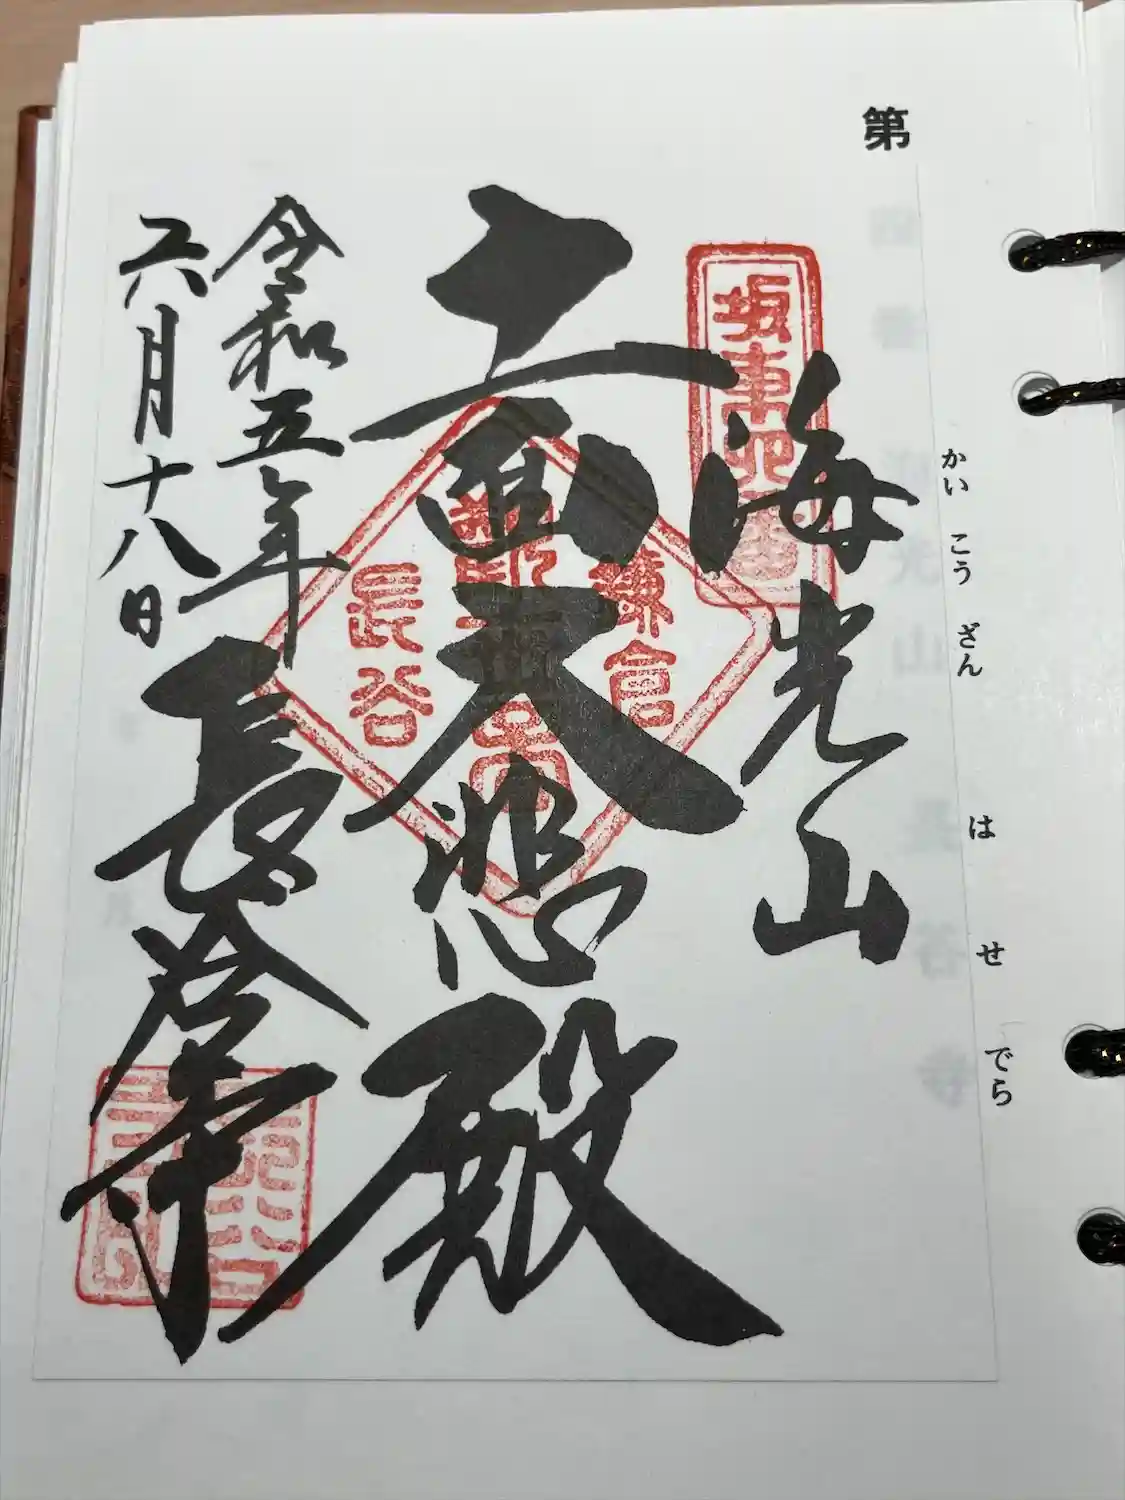 第
かい こう ざん
は せ でら
坂東四番
海光山
鎌倉
長谷
大悲殿
令和五年
六月十八日
長谷寺